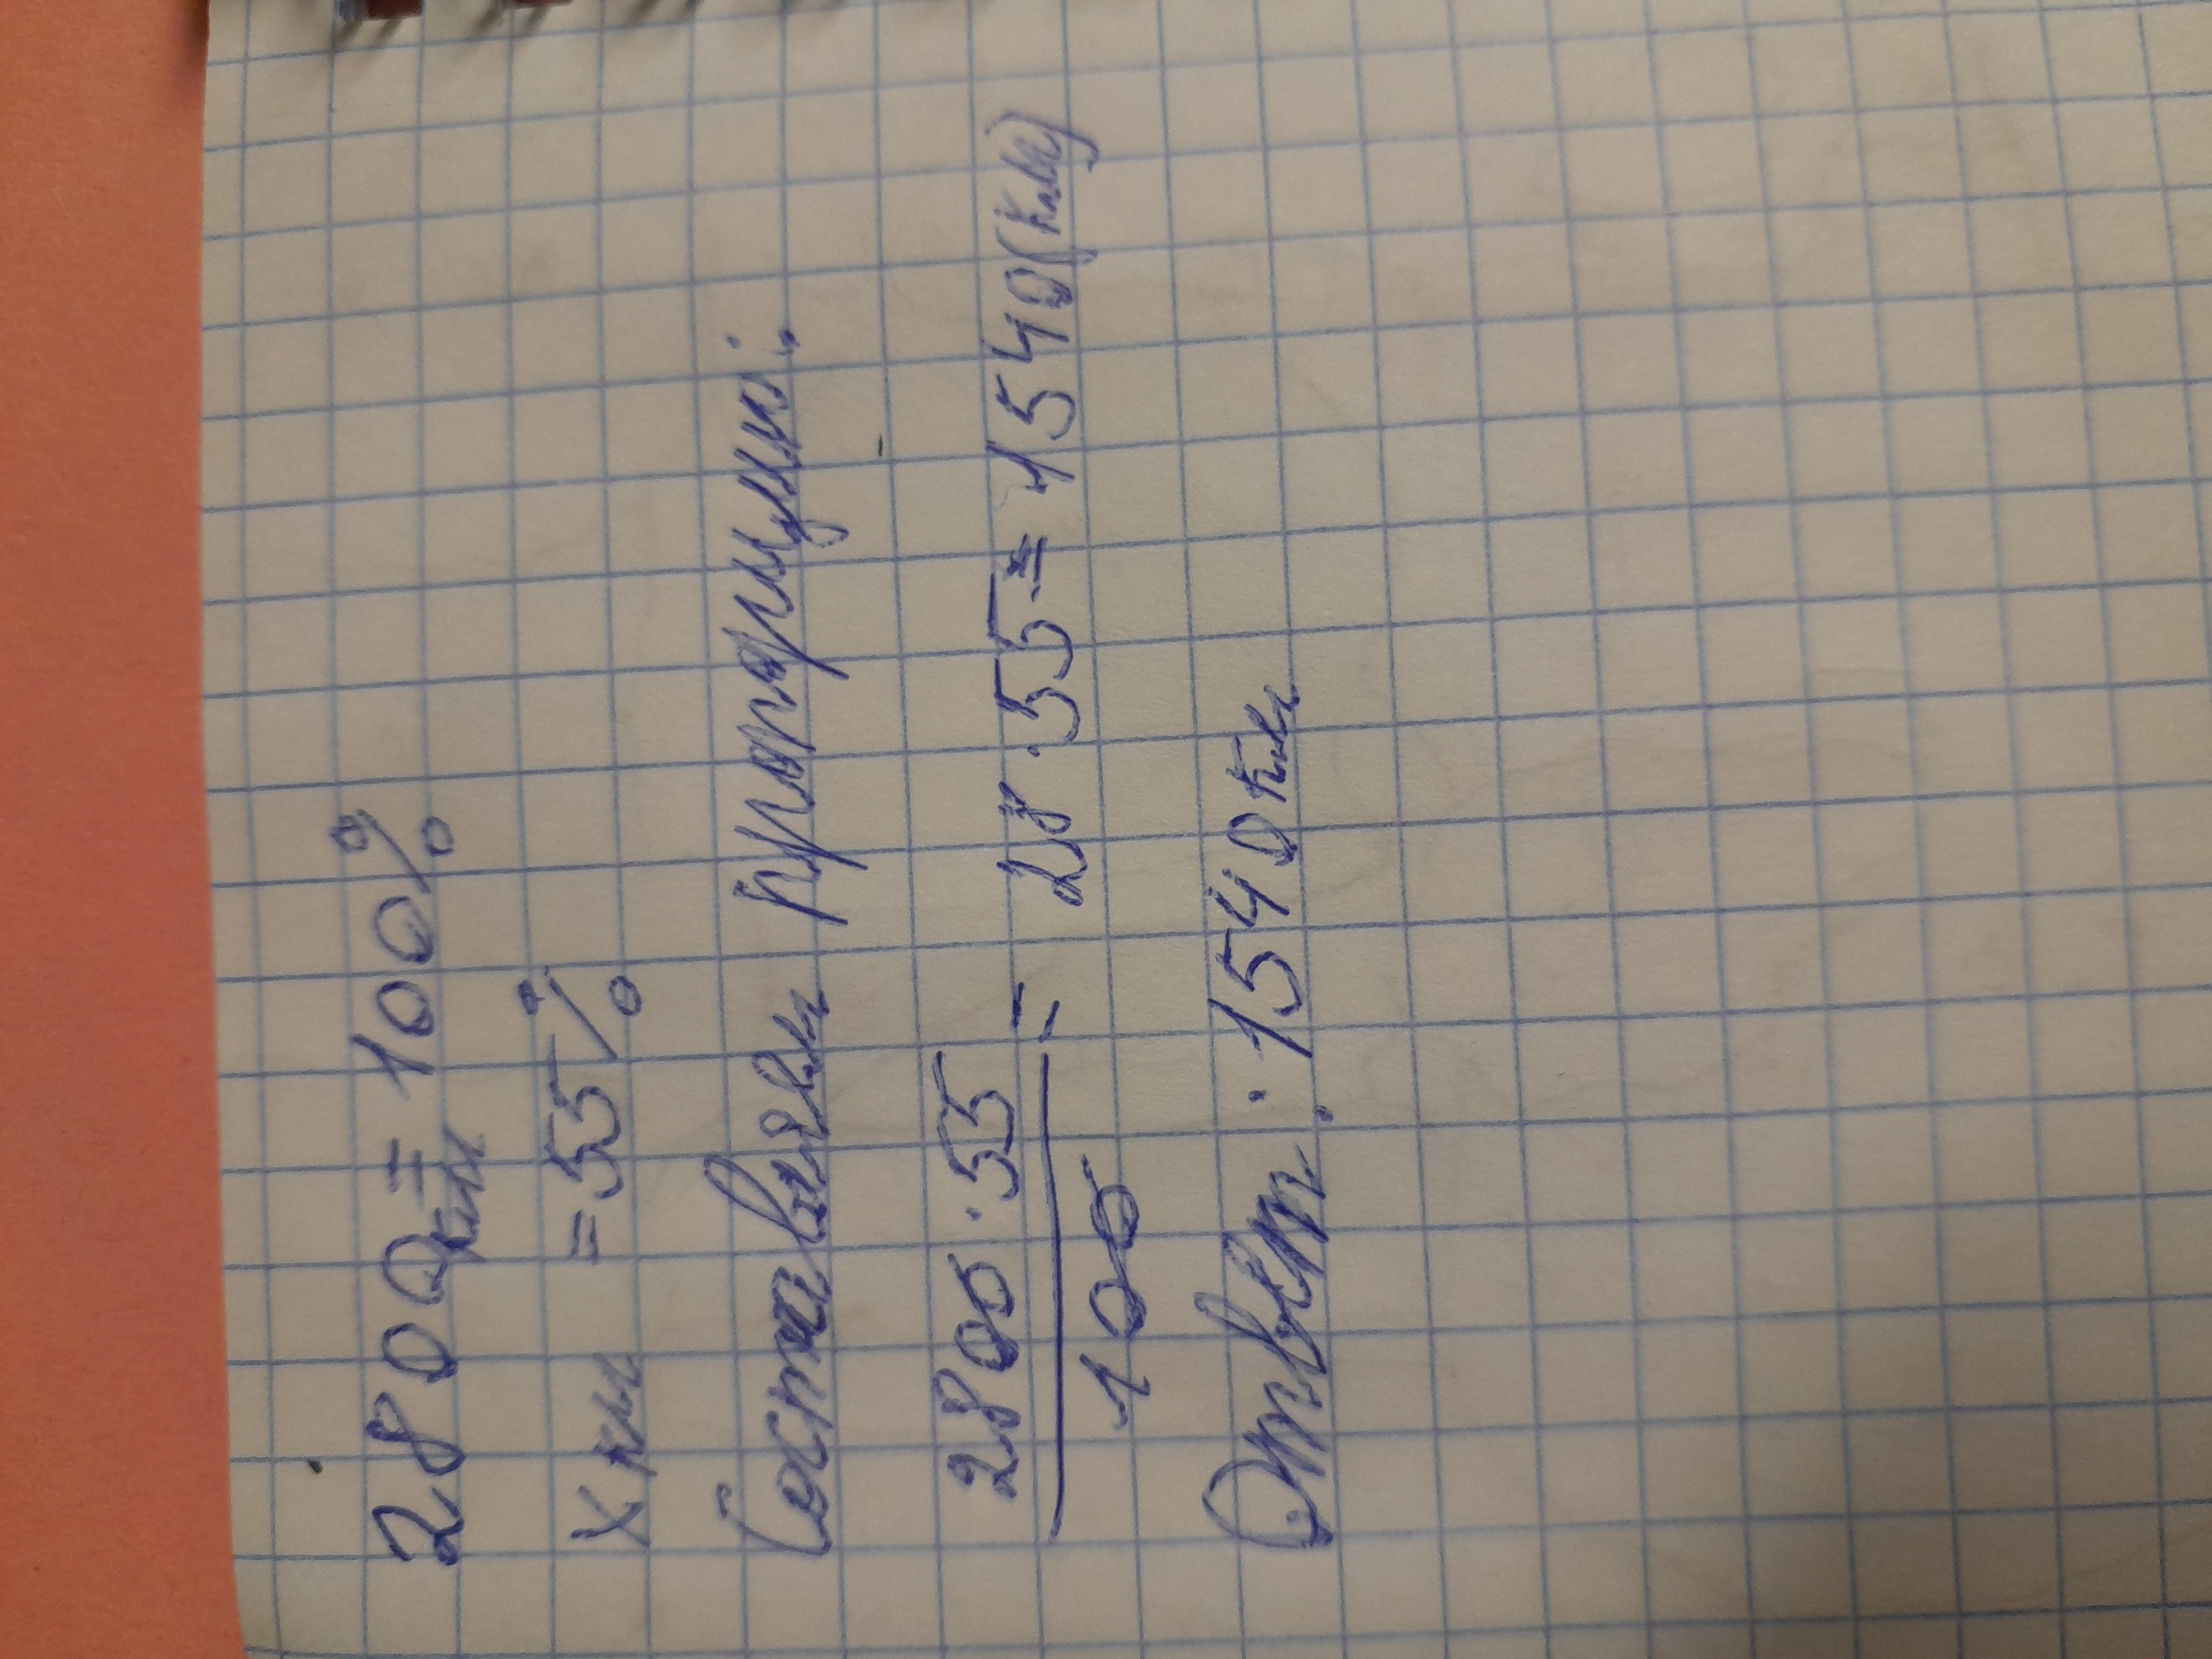 2800км = 100%
X км = 55%
Составляем пропорцию:
2800·55
100
= 28·55 = 1540(км)
Ответ: 1540 км